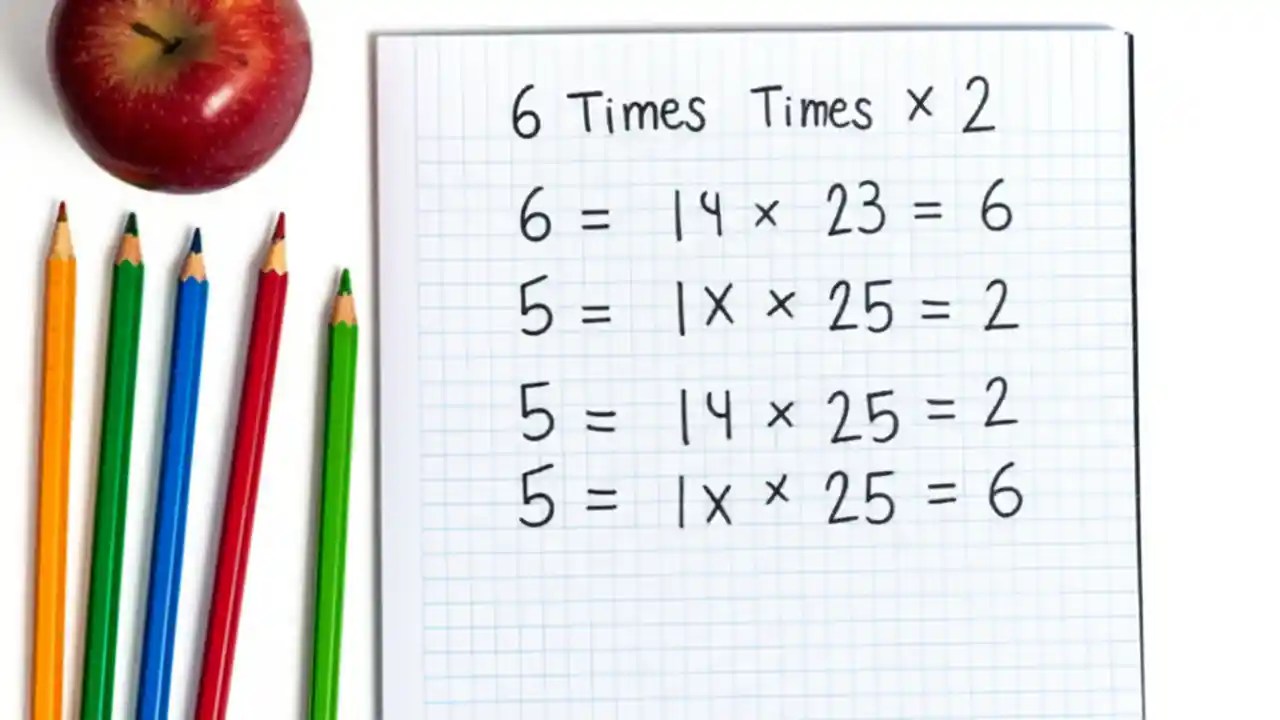 6 Times Times × 2
6 = 14 × 23 = 6
5 = 1X × 25 = 2
5 = 14 × 25 = 2
5 = 1X × 25 = 6